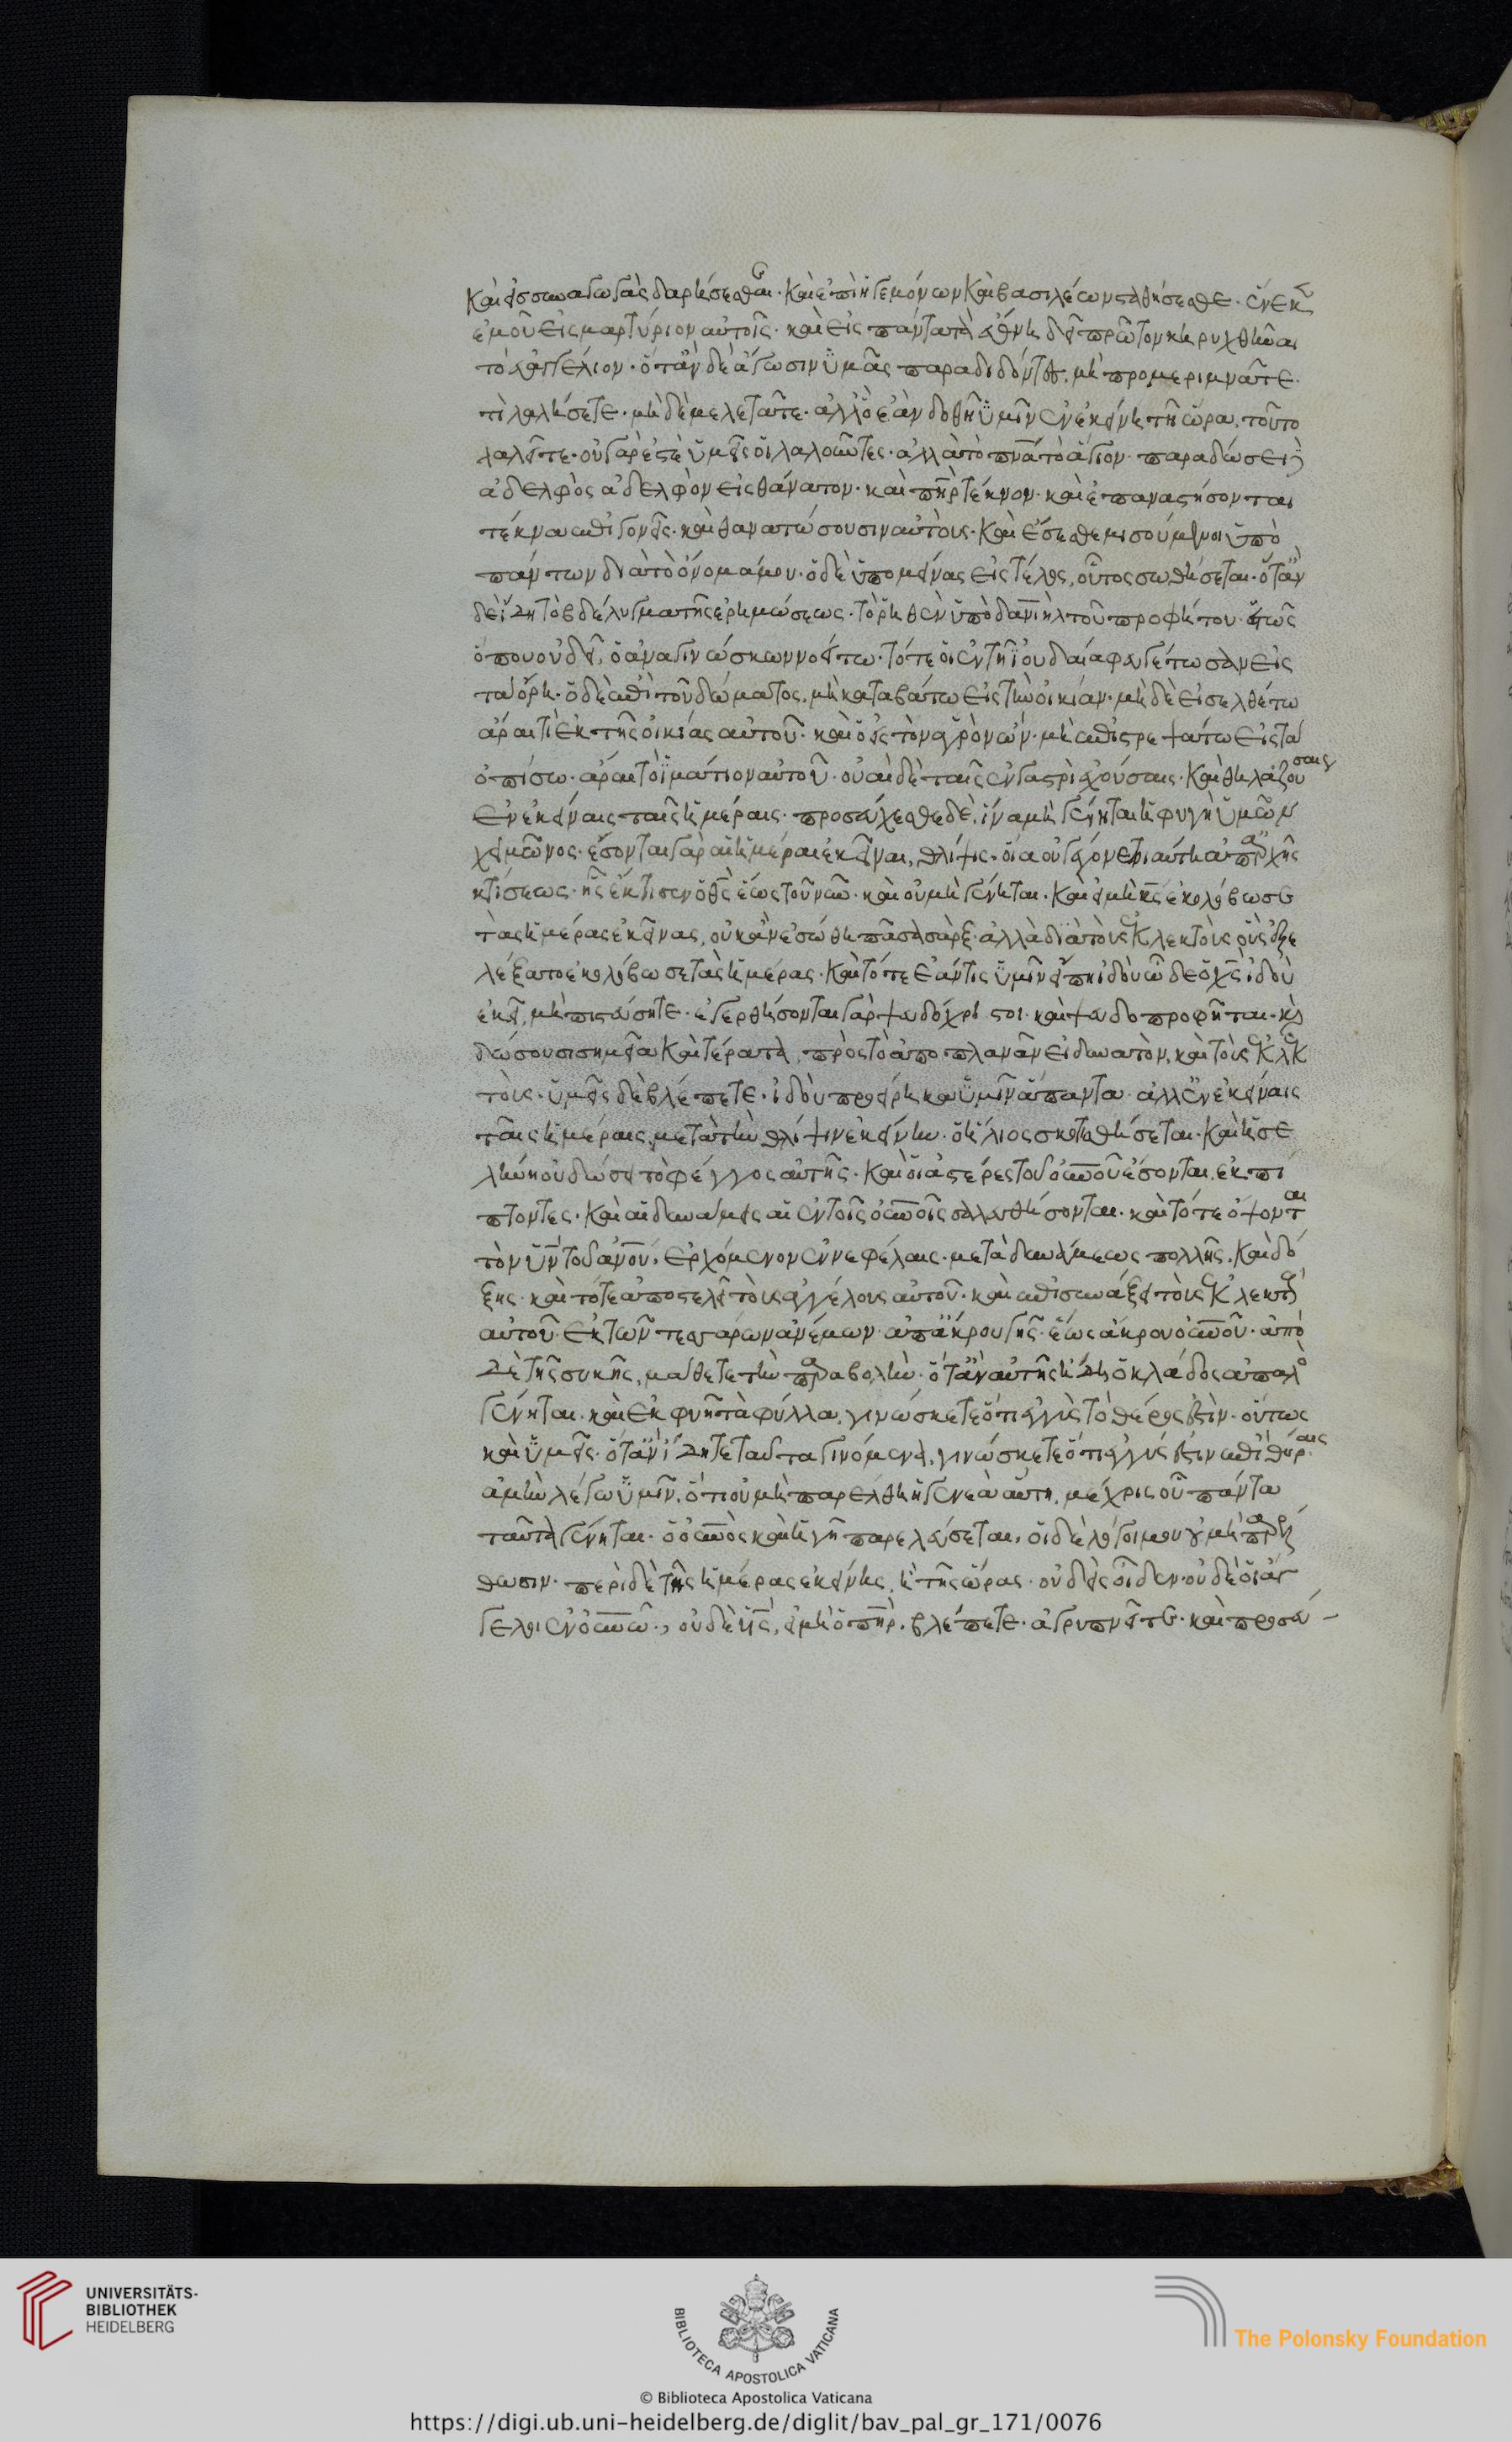 καὶ εἰς συναγωγὰς δαρήσεσθαι· καὶ ἐπὶ ἡγεμόνων καὶ βασιλέων σταθήσεσθε· ἕνεκεν
ἐμοῦ εἰς μαρτύριον αὐτοῖς· καὶ εἰς πάντα τὰ ἔθνη δεῖ πρῶτον κηρυχθῆναι
τὸ εὐαγγέλιον· ὅταν δὲ ἄγωσιν ὑμᾶς παραδιδόντες, μὴ προμεριμνᾶτε
τί λαλήσετε· μὴ δὲ μελετᾶτε· ἀλλ' ὃ ἐὰν δοθῇ ὑμῖν ἐν ἐκείνη τῇ ὥρα, τοῦτο
λαλεῖτε· οὐ γάρ ἐστὲ ὑμεῖς οἱ λαλοῦντες· ἀλλὰ τὸ πνα τὸ ἅγιον· παραδώσει δὲ
ἀδελφὸς ἀδελφὸν εἰς θάνατον· καὶ πηρ τέκνον· καὶ ἐπαναστήσονται
τέκνα ἐπὶ γονεῖς· καὶ θανατώσουσιν αὐτούς· καὶ ἔσεσθε μισούμενοι ὑπὸ
πάντων διὰ τὸ ὄνομά μου· ὁ δὲ ὑπομείνας εἰς τέλος, οὗτος σωθήσεται· ὅταν
δὲ ἴδητε τὸ βδέλυγμα τῆς ἐρημώσεως· τὸ ῥηθὲν ὑπὸ δανιὴλ τοῦ προφήτου· ἑστὼς
ὅπου οὐ δεῖ, ὁ ἀναγινώσκων νοείτω· τότε οἱ ἐν τῇ ἰουδαία φευγέτωσαν εἰς
τὰ ὄρη· ὁ δὲ ἐπὶ τοῦ δώματος, μὴ καταβάτω εἰς τὴν οἰκίαν· μὴ δὲ εἰσελθέτω
ἆραι τὶ ἐκ τῆς οἰκίας αὐτοῦ· καὶ ὁ εἰς τὸν ἀγρὸν ὤν· μὴ ἐπιστρεψάτω εἰς τὰ
ὀπίσω· ἆραι τὸ ἱμάτιον αὐτοῦ· οὐαὶ δὲ ταῖς ἐν γαστρὶ ἐχούσαις· καὶ θηλαζούσαις
ἐν ἐκείναις ταῖς ἡμέραις· προσεύχεσθε δὲ, ἵνα μὴ γένηται ἡ φυγὴ ὑμῶν
χειμῶνος· ἔσονται γὰρ αἱ ἡμέραι ἐκεῖναι, θλίψις· οἵα οὐ γέγονε τοιαύτη ἀπαρχῆς
κτίσεως· ἧς ἔκτισεν ὁ θς ἕως τοῦ νῦν· καὶ οὐ μὴ γένηται· καὶ εἰ μὴ κς ἐκολόβωσε
τὰς ἡμέρας ἐκείνας, οὐκ ἂν ἐσώθη πᾶσα σὰρξ· ἀλλὰ διὰ τοὺς ἐκλεκτοὺς οὓς ἐξε
λέξατο ἐκολόβωσε τὰς ἡμέρας· καὶ τότε ἐάν τις ὑμῖν εἴπη ἰδοὺ ὧδε ὁ χς ἰδοὺ
ἐκεῖ, μὴ πιστεύσητε· ἐγερθήσονται γὰρ ψευδόχριστοι· καὶ ψευδοπροφῆται· καὶ
δώσουσι σημεῖα καὶ τέρατα, πρὸς τὸ ἀποπλανᾶν εἰ δυνατὸν, καὶ τοὺς ἐκλεκ
τούς· ὑμεῖς δὲ βλέπετε· ἰδοὺ προείρηκα ὑμῖν ἅπαντα· ἀλλ' ἐν ἐκείναις
ταῖς ἡμέραις, μετὰ τὴν θλίψιν ἐκείνην· ὁ ἥλιος σκοτισθήσεται· καὶ ἡ σε
λήνη οὐ δώσει τὸ φέγγος αὐτῆς· καὶ οἱ ἀστέρες τοῦ οὐνοῦ ἔσονται, ἐκπί
πτοντες· καὶ αἱ δυνάμεις αἱ ἐν τοῖς οὐνοῖς σαλευθήσονται· καὶ τότε ὄψονται
τὸν υν τοῦ ανου, ἐρχόμενον ἐν νεφέλαις· μετὰ δυνάμεως πολλῆς, καὶ δό
ξης· καὶ τότε ἀποστελεῖ τοὺς ἀγγέλους αὐτοῦ· καὶ ἐπισυνάξει τοὺς ἐκλεκτοὺς
αὐτοῦ· ἐκ τῶν τεσσάρων ἀνέμων· ἀπ' ἄκρου γῆς· ἕως ἄκρου οὐνοῦ· ἀπὸ
δὲ τῆς συκῆς, μάθετε τὴν παραβολήν· ὅταν αὐτῆς ἤδη ὁ κλάδος ἁπαλὸς
γένηται· καὶ ἐκφυῇ τὰ φύλλα, γινώσκετε ὅτι ἐγγὺς τὸ θέρος ἐστὶν· οὕτως
καὶ ὑμεῖς· ὅταν ἴδητε ταῦτα γινόμενα, γινώσκετε ὅτι ἐγγύς ἐστιν ἐπὶ θύραις
ἀμὴν λέγω ὑμῖν, ὅτι οὐ μὴ παρέλθη ἡ γενεὰ αὕτη, μέχρις οὗ πάντα
ταῦτα γένηται· ὁ οὐνὸς καὶ ἡ γῆ παρελεύσεται, οἱ δὲ λόγοι μου οὐ μὴ παρέλ
θωσιν· περὶ δὲ τῆς ἡμέρας ἐκείνης, ἢ τῆς ὥρας· οὐδεὶς οἶδεν· οὐδὲ οἱ ἄγ
γελοι ἐν οὐνῶ, οὐδὲ ὁ υς, εἰ μὴ ὁ πηρ. βλέπετε· ἀγρυπνεῖτε· καὶ προσεύ
UNIVERSITÄTS-
BIBLIOTHEK
HEIDELBERG
BIBLIOTECA APOSTOLICA VATICANA
The Polonsky Foundation
© Biblioteca Apostolica Vaticana
https://digi.ub.uni-heidelberg.de/diglit/bav_pal_gr_171/0076